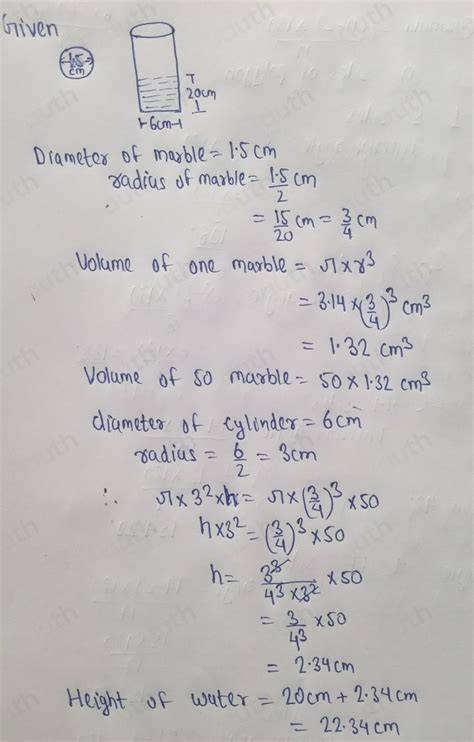 Given
1.5
cm
20cm
6cm
Diameter of marble = 1.5 cm
radius of marble = 1.5/2 cm
= 15/20 cm = 3/4 cm
Volume of one marble = π × r³
= 3.14 × (3/4)³ cm³
= 1.32 cm³
Volume of 50 marble = 50 × 1.32 cm³
diameter of cylinder = 6cm
radius = 6/2 = 3cm
∴ π × 3² × h = π × (3/4)³ × 50
h × 3² = (3/4)³ × 50
h = 3³/(4³ × 3²) × 50
= 3/4³ × 50
= 2.34 cm
Height of water = 20cm + 2.34 cm
= 22.34 cm